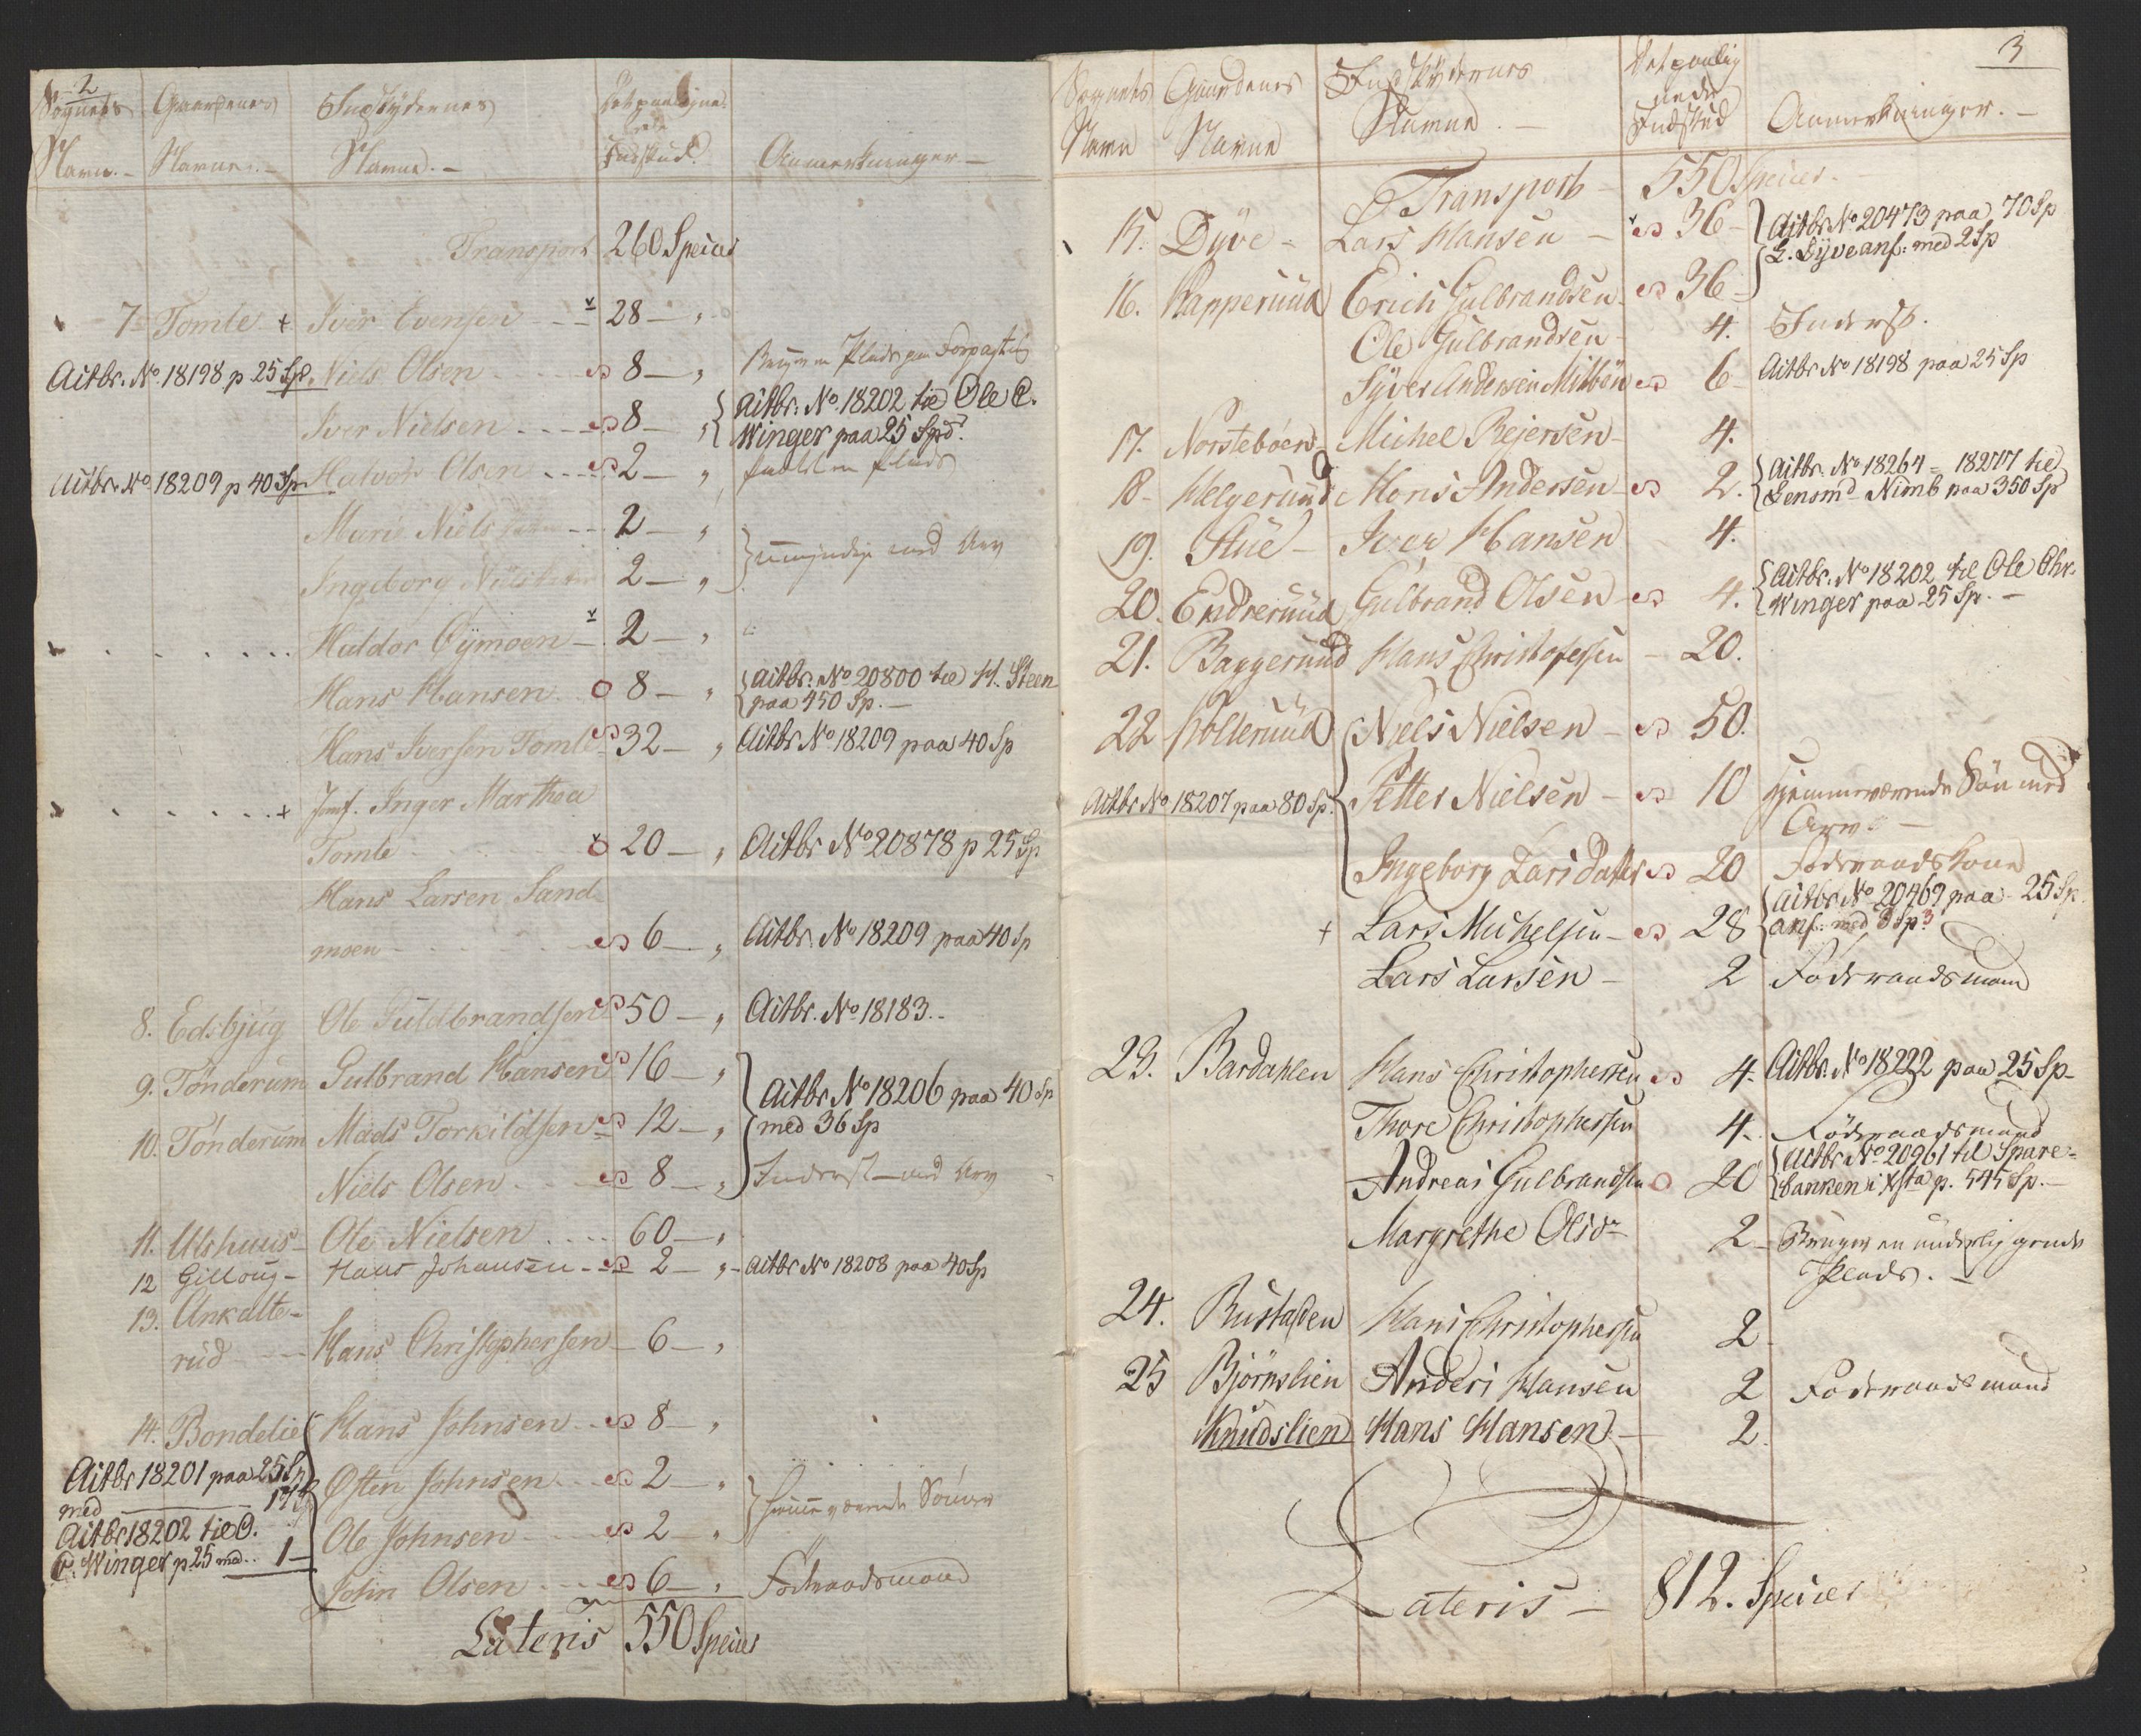 2
Sognets Gaardenes Indskydernes Det paalignede
Navn. – Navne. – Navne. – Indskud. Anmerkninger –
Transport 260 Species
7 Tomle + Iver Evensen 28 – „
Actbr. No 18198 p 25 Sp. Niels Olsen 8 – „ Bruger en Plads
Iver Nielsen 8 – „ { Actbr. No 18202 til Ole C.
Winger paa 25 Spd.
Actbr. No 18209 p 40 Sp. Halvor Olsen 2 – „ Plads
Marie Niels 2 – „
Ingeborg Niels 2 – „ } umyndige med Arv
Haldor Öÿmoen 2 – „
Hans Hansen 8 – „ { Actbr. No 20800 til H. Steen
paa 450 Sp. –
Hans Iversen Tomle 32 – „ Actbr No 18209 paa 40 Sp
+ Jmf. Inger Marthea
Tomle 20 – „ Actbr No 20878 p 25 Sp
Hans Larsen Sand
moen 6 – „ Actbr. No 18209 paa 40 Sp
8. Edsbjug Ole Guldbrandsen 50 – „ Actbr. No 18183. –
9. Tönderum Gulbrand Hansen 16 – „
Actbr No 18206 paa 40 Sp
10. Tönderum Mads Torkildsen 12 – „ med 36 Sp
Niels Olsen 8 – „ Inderst med Arv
11. Ulshuus – Ole Nielsen 60 – „
12 Gilloug – Hans Johansen 2 – „ – Actbr No 18208 paa 40 Sp
13. Ankalte –
rud Hans Christophersen – 6 – „
14. Bondelie Hans Johnsen 8 – „
Actbr 18201 paa 25 Sp Østen Johnsen 2 – „
med 17
Actbr 18202 til O. Ole Johnsen 2 – „ } hiemmeværende Sönner
C. Winger p. 25 med .. 1 –
John Olsen 6 – „ Föderaadsmand
Lateris 550 Species
3
Sognets Gaardenes Indskydernes Det paalig
nede
Navn Navne Navne. – Indskud Anmerkninger. –
Transport – 550 Species.
15. Dÿve – Lars Hansen – 36 – } Actbr No 20473 paa 70 Sp
L. Dÿve anf: med 2 Sp
16. Rapperuud Erich Gulbrandsen 36 –
Ole Gulbrandsen 4. Inderst.
Syver Andersen Milbön 6 – Actbr No 18198 paa 25 Sp
17. Norsteböen – Michel Rejersen – 4.
18 – Helgeruud Mons Andersen – 2. { Actbr. No 18264 = 18277 til
Lensmd Nimb paa 350 Sp
19. Stue – Iver Hansen 4.
20. Endreruud Gulbrand Olsen 4. { Actbr. No 18202 til Ole Chr.
Winger paa 25 Sp. –
21. Baggeruud Hans Christofersen – 20.
22 Kolleruud Niels Nielsen – 50.
Actbr No 18207 paa 80 Sp. Petter Nielsen – 10 hjemmeværende Sön med
Arv –
Ingeborg Larsdatter 20 Föderaads Kone
+ Lars Michelsen – 28 { Actbr No 20469 paa 25 Sp.
anf. med 3 Sp.
Lars Larsen – 2 Föderaadsmand
23. Bardahlen Hans Christophersen 4. Actbr. No 18222 paa 25 Sp –
Thore Christophersen 4. Föderaadsmand
Andreas Gulbrandsen 20 { Actbr No 20961 til Spare =
banken i Xsta p. 545 Sp. –
Margrethe Olsdr 2 – Bruger en underliggende
Plads. –
24. Rustaden Hans Christophersen 2 –
25 Björnslien Anders Hansen 2 Föderaadsmand
Knudslien Hans Hansen – 2.
Lateris – 812. Species